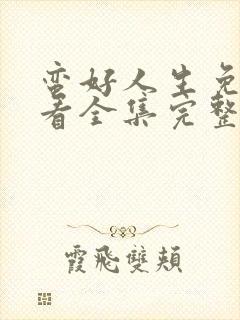 蛮好人生免
看全集完整
霞飛雙頰